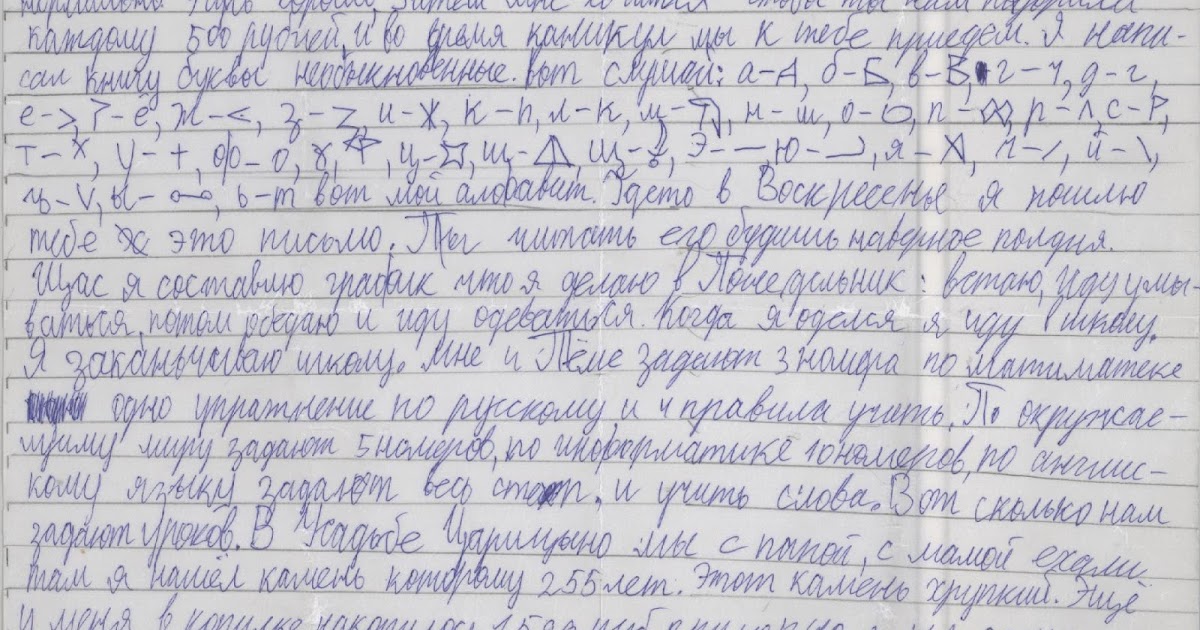 чтобы ты нам подарили
каждому 500 рублей, и во время каникул мы к тебе приедем. Я напи-
сал книгу буквы необыкновенные. вот слушай: а-А, б-Б, в-В, г-ч, д-г,
е->, ?-ё, ж-<, з-Z, и-Ж, к-п, л-к, м-, н-ш, о-, п-, р-л, с-Р,
т-х, у-+, ф-о, х, ц-, ш-, щ-, э-—, ю-, я-, ч-/, й-\,
ъ-V, ы-, ь-т вот мой алфавит. Гдето в Воскресенье я пошлю
тебе это письмо. Ты читать его будишь наверное полдня.
Щас я составлю график что я делаю в Понедельник: встаю, иду умы-
ваться, потом обедаю и иду одеваться. Когда я оделся я иду в школу.
Я заканьчиваю школу. мне и Тёме задают 3 номера по матиматеке
одно упражнение по русскому и 4 правила учить. По окружаю-
щиму миру задают 5 номеров, по информатике 10 номеров, по англис-
кому языку задают весь стоп. и учить слова. Вот сколько нам
задают уроков. В Усадьбе Царицыно мы с папой, с мамой ехали
там я нашёл камень которому 255 лет. Этот камень хрупкий. Ещё
и меня в копилке накопилось